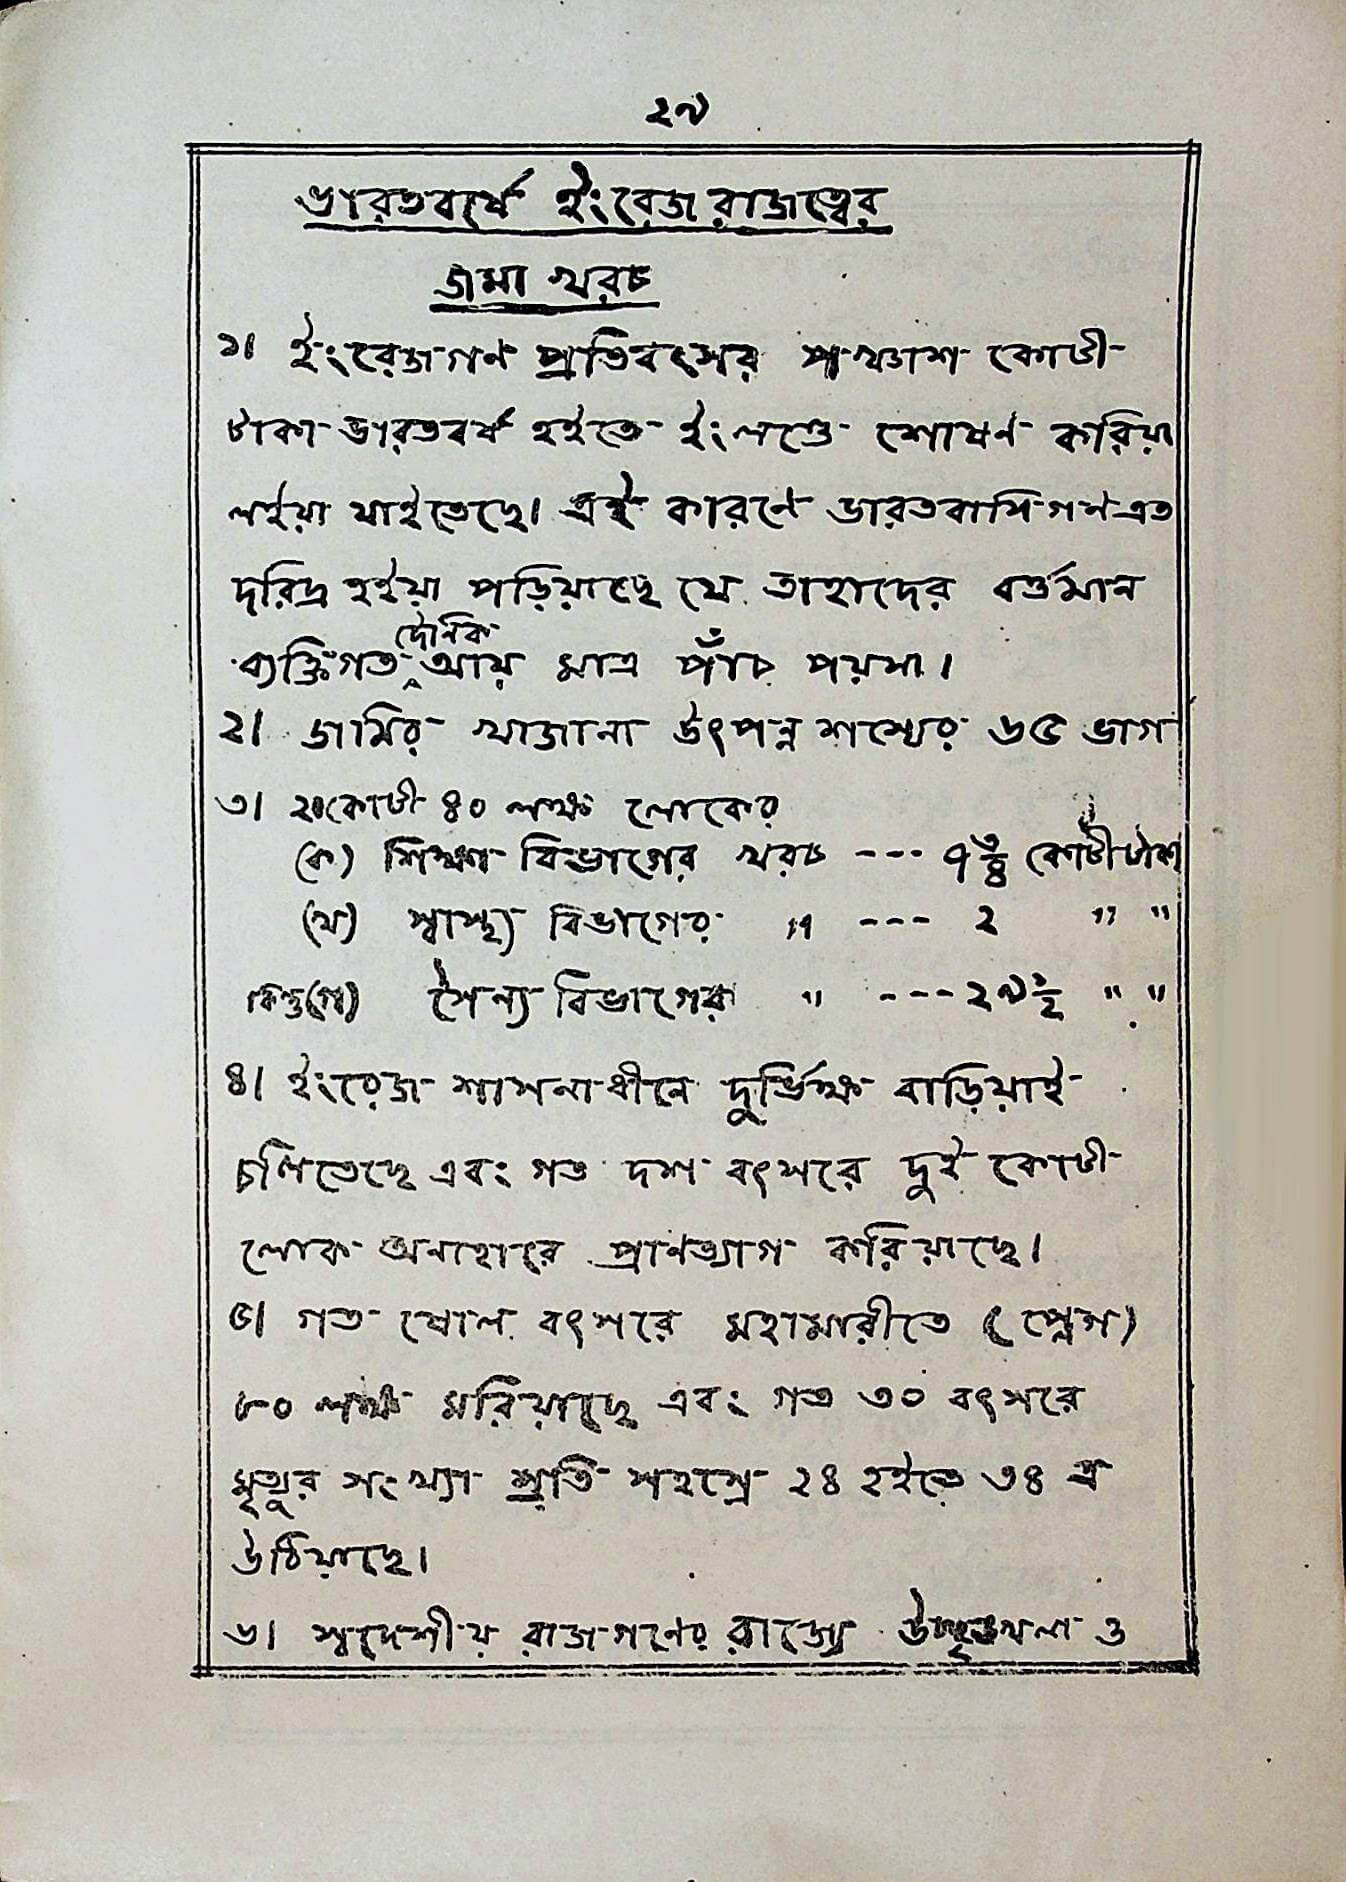 ২৯
ভারতবর্ষে ইংরেজ রাজত্বের
জমা খরচ
১। ইংরেজগণ প্রতিবৎসর পঞ্চাশ কোটী
টাকা ভারতবর্ষ হইতে ইংলণ্ডে শোষণ করিয়া
লইয়া যাইতেছে। এই কারণে ভারতবাসিগণ এত
দরিদ্র হইয়া পড়িয়াছে যে তাহাদের বর্ত্তমান
দৈনিক
ব্যক্তিগত আয় মাত্র পাঁচ পয়সা।
২। জমির খাজানা উৎপন্ন শস্যের ৬৫ ভাগ
৩। কোটী ৪০ লক্ষ লোকের
(ক) শিক্ষা বিভাগের খরচ --- ৭ ৩/৪ কোটী টাকা
(খ) স্বাস্থ্য বিভাগের " --- ২ " "
কিন্তু (গ) সৈন্য বিভাগের " --- ২৯ ১/২ " "
৪। ইংরেজ শাসনাধীনে দুর্ভিক্ষ বাড়িয়াই
চলিতেছে এবং গত দশ বৎসরে দুই কোটী
লোক অনাহারে প্রাণত্যাগ করিয়াছে।
৫। গত ষোল বৎসরে মহামারীতে (প্লেগ)
৮০ লক্ষ মরিয়াছে এবং গত ৩০ বৎসরে
মৃত্যুর সংখ্যা প্রতি সহস্রে ২৪ হইতে ৩৪ এ
উঠিয়াছে।
৬। স্বদেশীয় রাজগণের রাজ্যে উচ্ছৃঙ্খলা ও